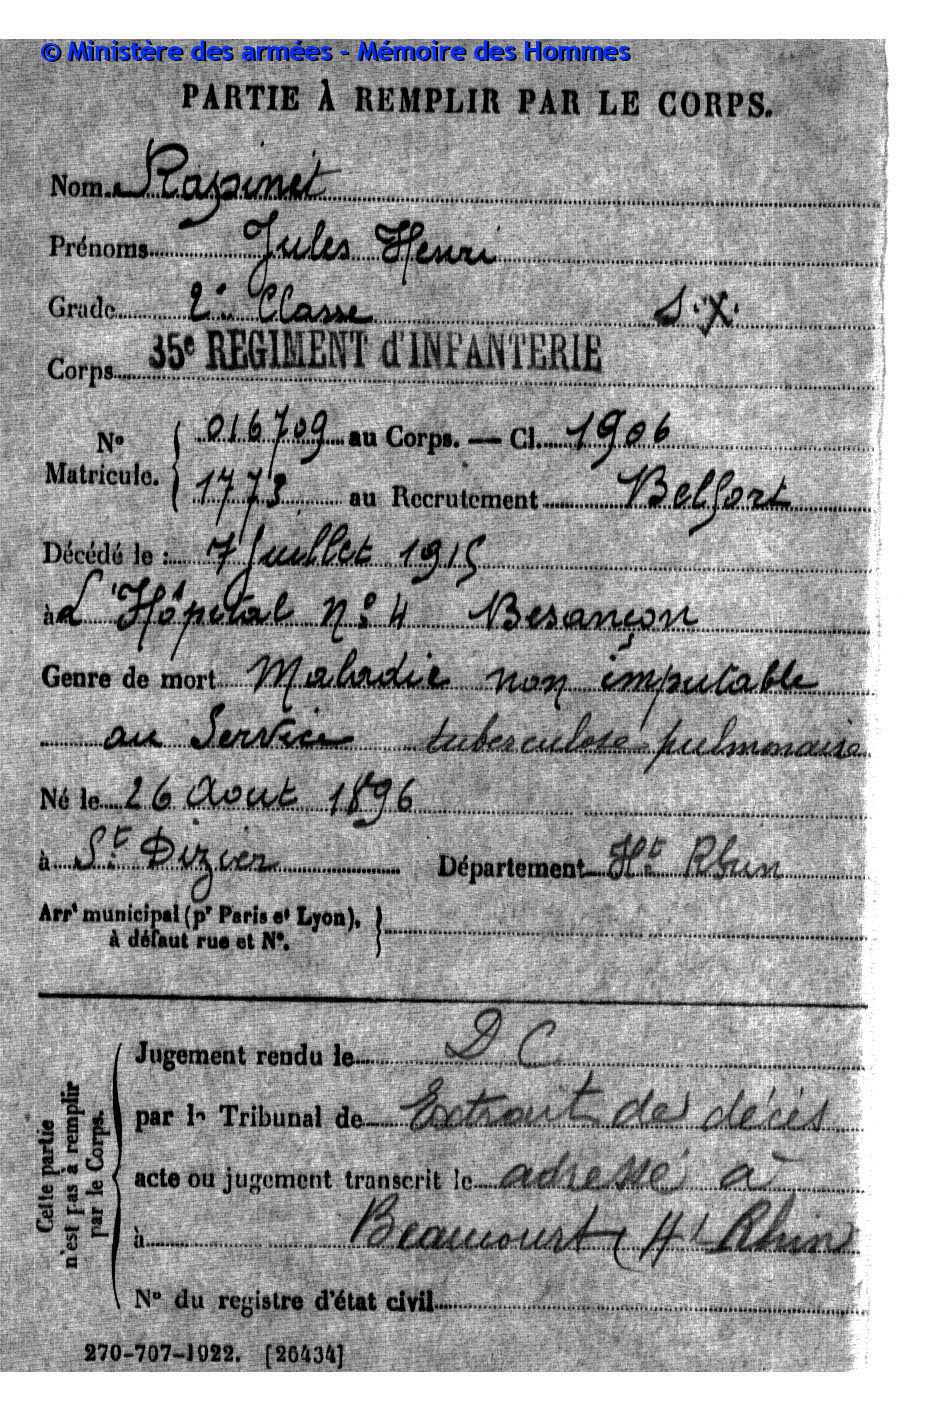 © Ministère des armées - Mémoire des Hommes
PARTIE À REMPLIR PAR LE CORPS.
Nom Raspinet
Prénoms Jules Henri
Grade 2e Classe S.X.
Corps 35e REGIMENT d'INFANTERIE
No Matricule. { 016709 au Corps. — Cl. 1906
1773 au Recrutement Belfort
Décédé le : 7 Juillet 1915
à L'Hôpital no 4 Besançon
Genre de mort Maladie non imputable
au Service tuberculose pulmonaire
Né le 26 Aout 1896
à St Dizier Département Ht Rhin
Arrt municipal (pr Paris et Lyon),
à défaut rue et No.
Cette partie
n'est pas à remplir
par le Corps.
Jugement rendu le D C
par le Tribunal de Extrait de décès
acte ou jugement transcrit le adressé à
à Beaucourt (Ht Rhin
No du registre d'état civil
270-707-1922. [26434]